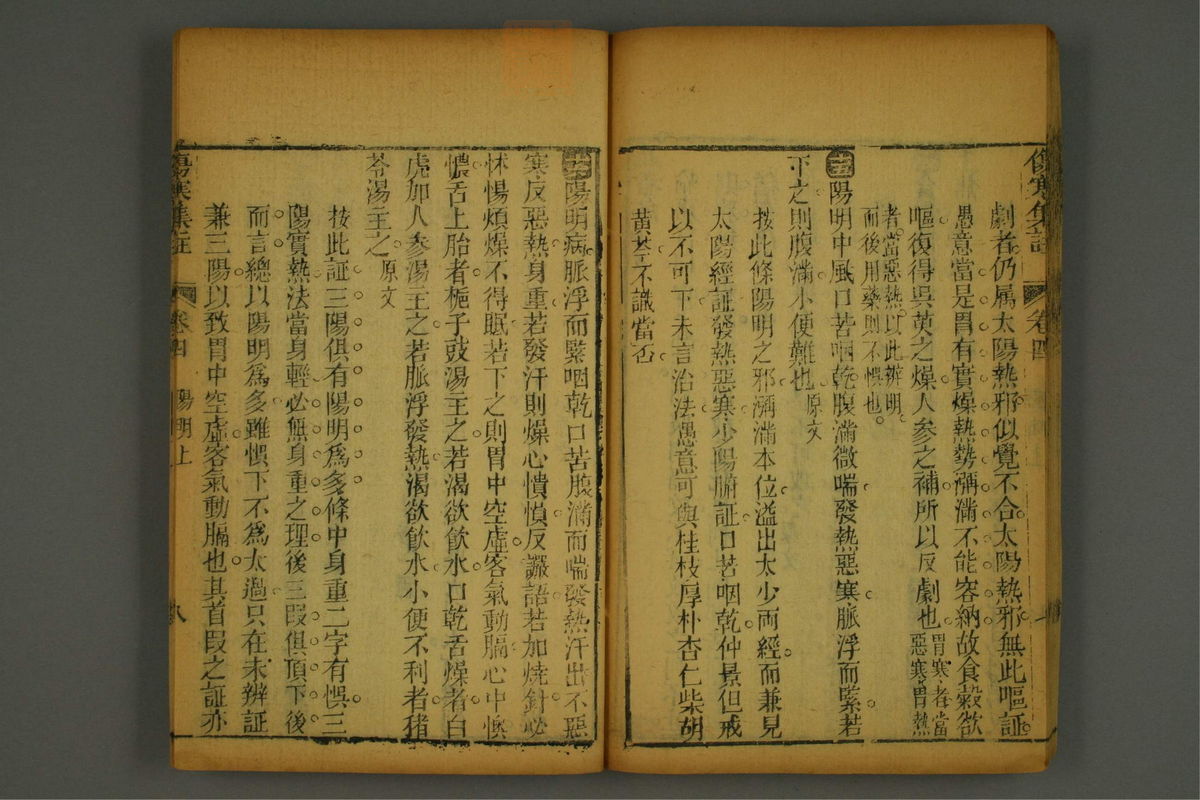 傷寒集註
卷四
劇者仍属太陽熱邪似覺不合太陽熱邪無此嘔証
愚意當是胃有實燥熱勢瀰滿不能容納故食穀欲
嘔復得吳萸之燥人参之補所以反劇也胃寒者當惡寒胃熱
者當惡熱以此辨明
而後用藥則不悞也
十五陽明中風口苦咽乾腹滿微喘發熱惡寒脈浮而緊若
下之則腹滿小便難也原文
按此條陽明之邪瀰滿本位溢出太少两經而兼見
太陽經証發熱惡寒少陽腑証口苦咽乾仲景但戒
以不可下未言治法愚意可與桂枝厚朴杏仁柴胡
黄芩不識當否
十六陽明病脈浮而緊咽乾口苦腹滿而喘發熱汗出不惡
寒反惡熱身重若發汗則燥心憒憒反讝語若加燒針必
怵惕煩燥不得眠若下之則胃中空虛客氣動膈心中懊
憹舌上胎者梔子豉湯主之若渴欲飲水口乾舌燥者白
虎加人参湯主之若脈浮發熱渴欲飲水小便不利者猪
苓湯主之原文
按此証三陽俱有陽明爲多條中身重二字有悞三
陽實熱法當身輕必無身重之理後三叚俱頂下後
而言總以陽明爲多雖悞下不爲太過只在未辨証
兼三陽以致胃中空虛客氣動膈也其首叚之証亦
傷寒集註
卷四
陽明上
八